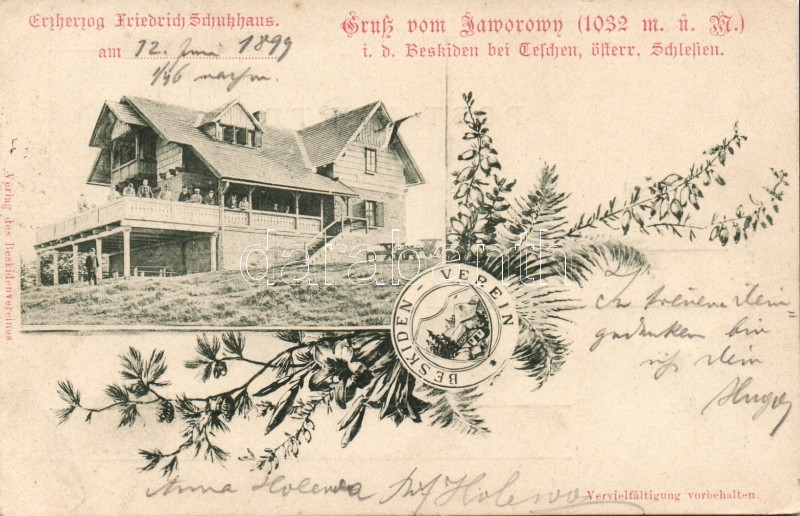 Erzherzog Friedrich Schutzhaus.
am 12. Juni 1899
nachm.
Gruß vom Jaworowy (1032 m. ü. M.)
i. d. Beskiden bei Teschen, österr. Schlesien.
Verlag des Beskidenvereines
BESKIDEN-VEREIN
darabanth
In treuem
gedenken bin
ich dein
Hugo
Anna Holewa Holewa
Vervielfältigung vorbehalten.